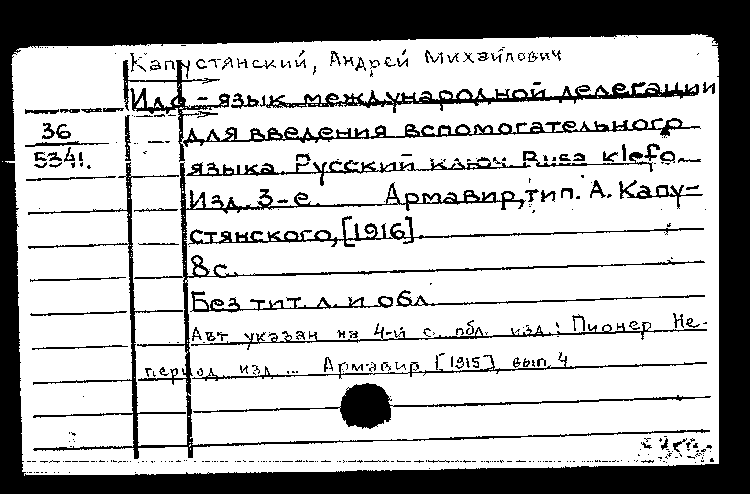 Капустянский, Андрей Михайлович
Идо – язык международной делегации
36
5341.
для введения вспомогательного
языка. Русский ключ. Rusa klefo.
Изд. 3-е. Армавир, тип. А. Капу-
стянского, [1916].
8 с.
Без тит. л. и обл.
Авт. указан на 4-й с. обл. изд.: Пионер. Не-
период. изд... Армавир, [1915], вып. 4